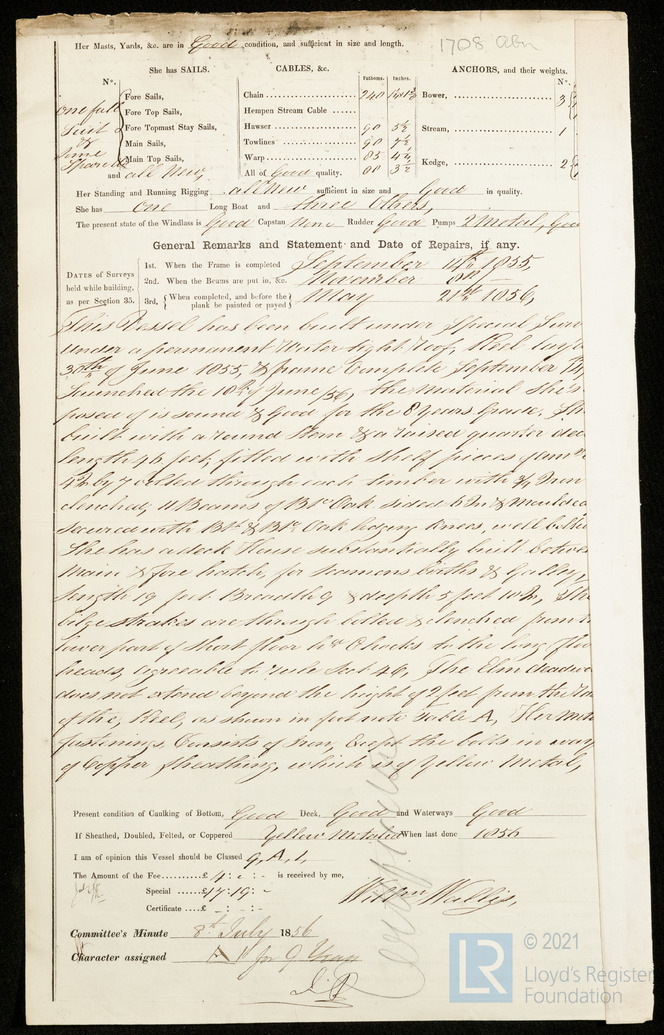 1708 abn
Her Masts, Yards, &c. are in Good condition, and sufficient in size and length.
She has SAILS.
CABLES, &c.
ANCHORS, and their weights.
Nº.
Fathoms. Inches.
Nº.
One full
Suit
&
Some
Spare
Fore Sails,
Fore Top Sails,
Fore Topmast Stay Sails,
Main Sails,
Main Top Sails,
and all New
Chain 240
Hempen Stream Cable
Hawser 90 5½
Towlines 90 7½
Warp 85 4½
All of Good quality. 80 3½
Bower, 3
Stream, 1
Kedge, 2
Her Standing and Running Rigging all New sufficient in size and Good in quality.
She has one Long Boat and three Others,
The present state of the Windlass is Good Capstan None Rudder Good Pumps 2 Metal,
General Remarks and Statement and Date of Repairs, if any.
DATES of Surveys
held while building,
as per Section 35.
1st. When the Frame is completed September 14th 1855,
2nd. When the Beams are put in, &c. November 8th
3rd, { When completed, and before the plank be painted or payed } May 21st 1856,
This Vessel has been built under Special Surv
under a permanent Water tight Roof, Keel lay'd
30th of June 1855, & frame Complete September
Launched the 10th of June /56, the Material She's
posed of is sound & Good for the 8 years Grade.
built with a round Stern & a raised quarter dec
length 46 feet, fitted with shelf pieces
4½ by 7 bolted through each timber with ¾ Iron
clenched, 11 Beams of Oak sided 6 In & Moulded
secured with & Oak lodging knees, well bolted
She has a deck House substantially built betwe
Main & fore hatch, for seamens births & Galley,
length 19 feet Breadth 9 & depth 5 feet 10 In,
bilge strakes are through bolted & clenched from
lower part of short floor Chocks to the long floo
heads, agreeable to rule Sect 46, The Elm deadwo
does not extend beyond the hight of 2 feet from the
of the, Keel, as shown in foot note Table A, Her
fastenings, Consists of Iron, Except the bolts in way
of Copper Sheathing, which is of Yellow Metal,
Present condition of Caulking of Bottom, Good Deck, Good and Waterways Good
If Sheathed, Doubled, Felted, or Coppered Yellow Metaled When last done 1856
I am of opinion this Vessel should be Classed 9, A, 1,
The Amount of the Fee £ 4 : - : - is received by me,
Special £ 17 : 19 : -
Certificate £ - : - : -
Willm Wallis,
Committee's Minute 8th July 1856
Character assigned A 1 for 9 Years
LR
© 2021
Lloyd's Register
Foundation